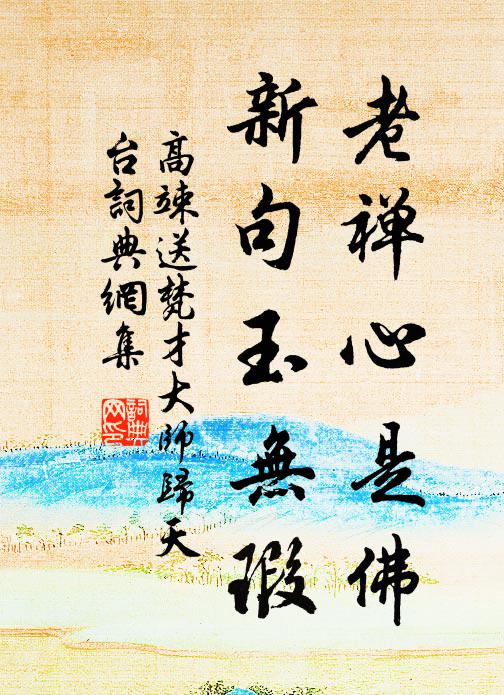 老禅心是佛
新句玉無瑕
高竦送梵才大師歸天
台詞典網集
詞典网印